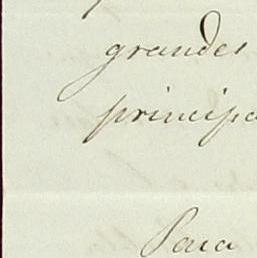 grandes
principa
Para